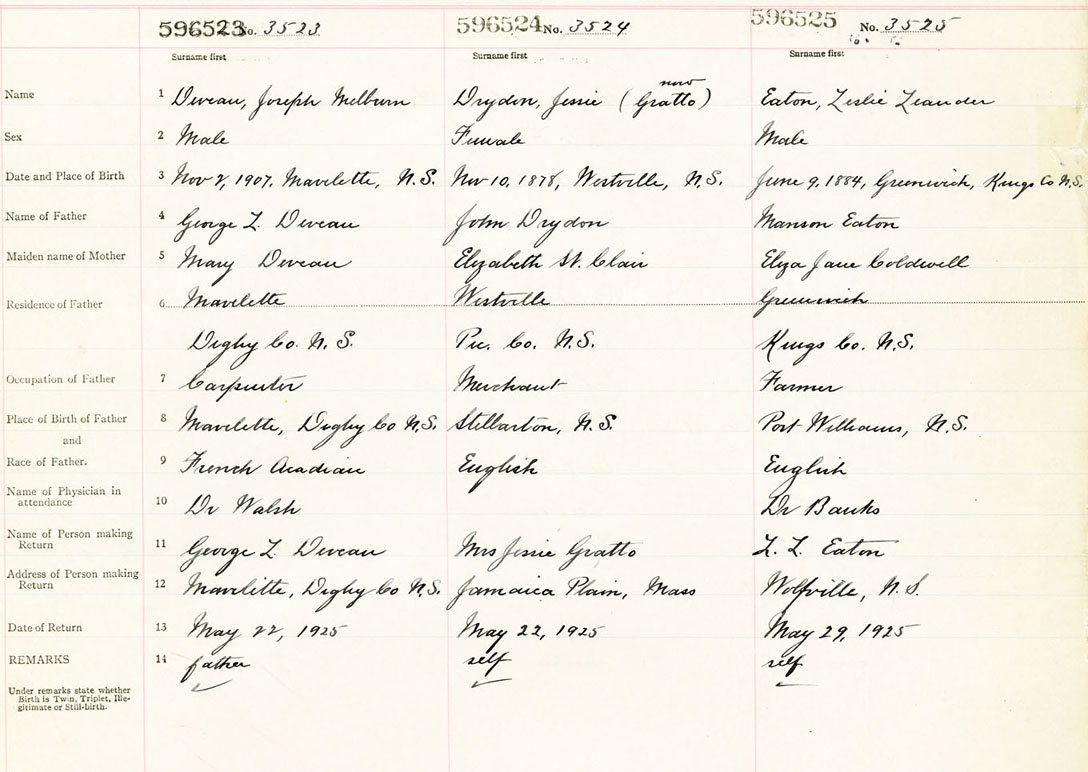 596523 No. 3523 596524 No. 3524 596525 No. 3525
Surname first Surname first Surname first
now
Name 1 Deveau, Joseph Melburn Drydon, Jessie (Gratto) Eaton, Leslie Leander
Sex 2 Male Female Male
Date and Place of Birth 3 Nov 2, 1907, Mavilette, N.S. Nov 10, 1878, Westville, N.S. June 9, 1884, Greenwich, Kings Co N.S.
Name of Father 4 George L. Deveau John Drydon Manson Eaton
Maiden name of Mother 5 Mary Deveau Elizabeth St. Clair Eliza Jane Coldwell
Residence of Father 6 Mavilette Westville Greenwich
Digby Co. N.S. Pic. Co. N.S. Kings Co. N.S.
Occupation of Father 7 Carpenter Merchant Farmer
Place of Birth of Father 8 Mavilette, Digby Co N.S. Stellarton, N.S. Port Williams, N.S.
and
Race of Father. 9 French Acadian English English
Name of Physician in
attendance 10 Dr Walsh Dr Banks
Name of Person making
Return 11 George L. Deveau Mrs Jessie Gratto L. L. Eaton
Address of Person making
Return 12 Mavilette, Digby Co N.S. Jamaica Plain, Mass Wolfville, N.S.
Date of Return 13 May 22, 1925 May 22, 1925 May 29, 1925
REMARKS 14 father self self
Under remarks state whether
Birth is Twin, Triplet, Ille-
gitimate or Still-birth.